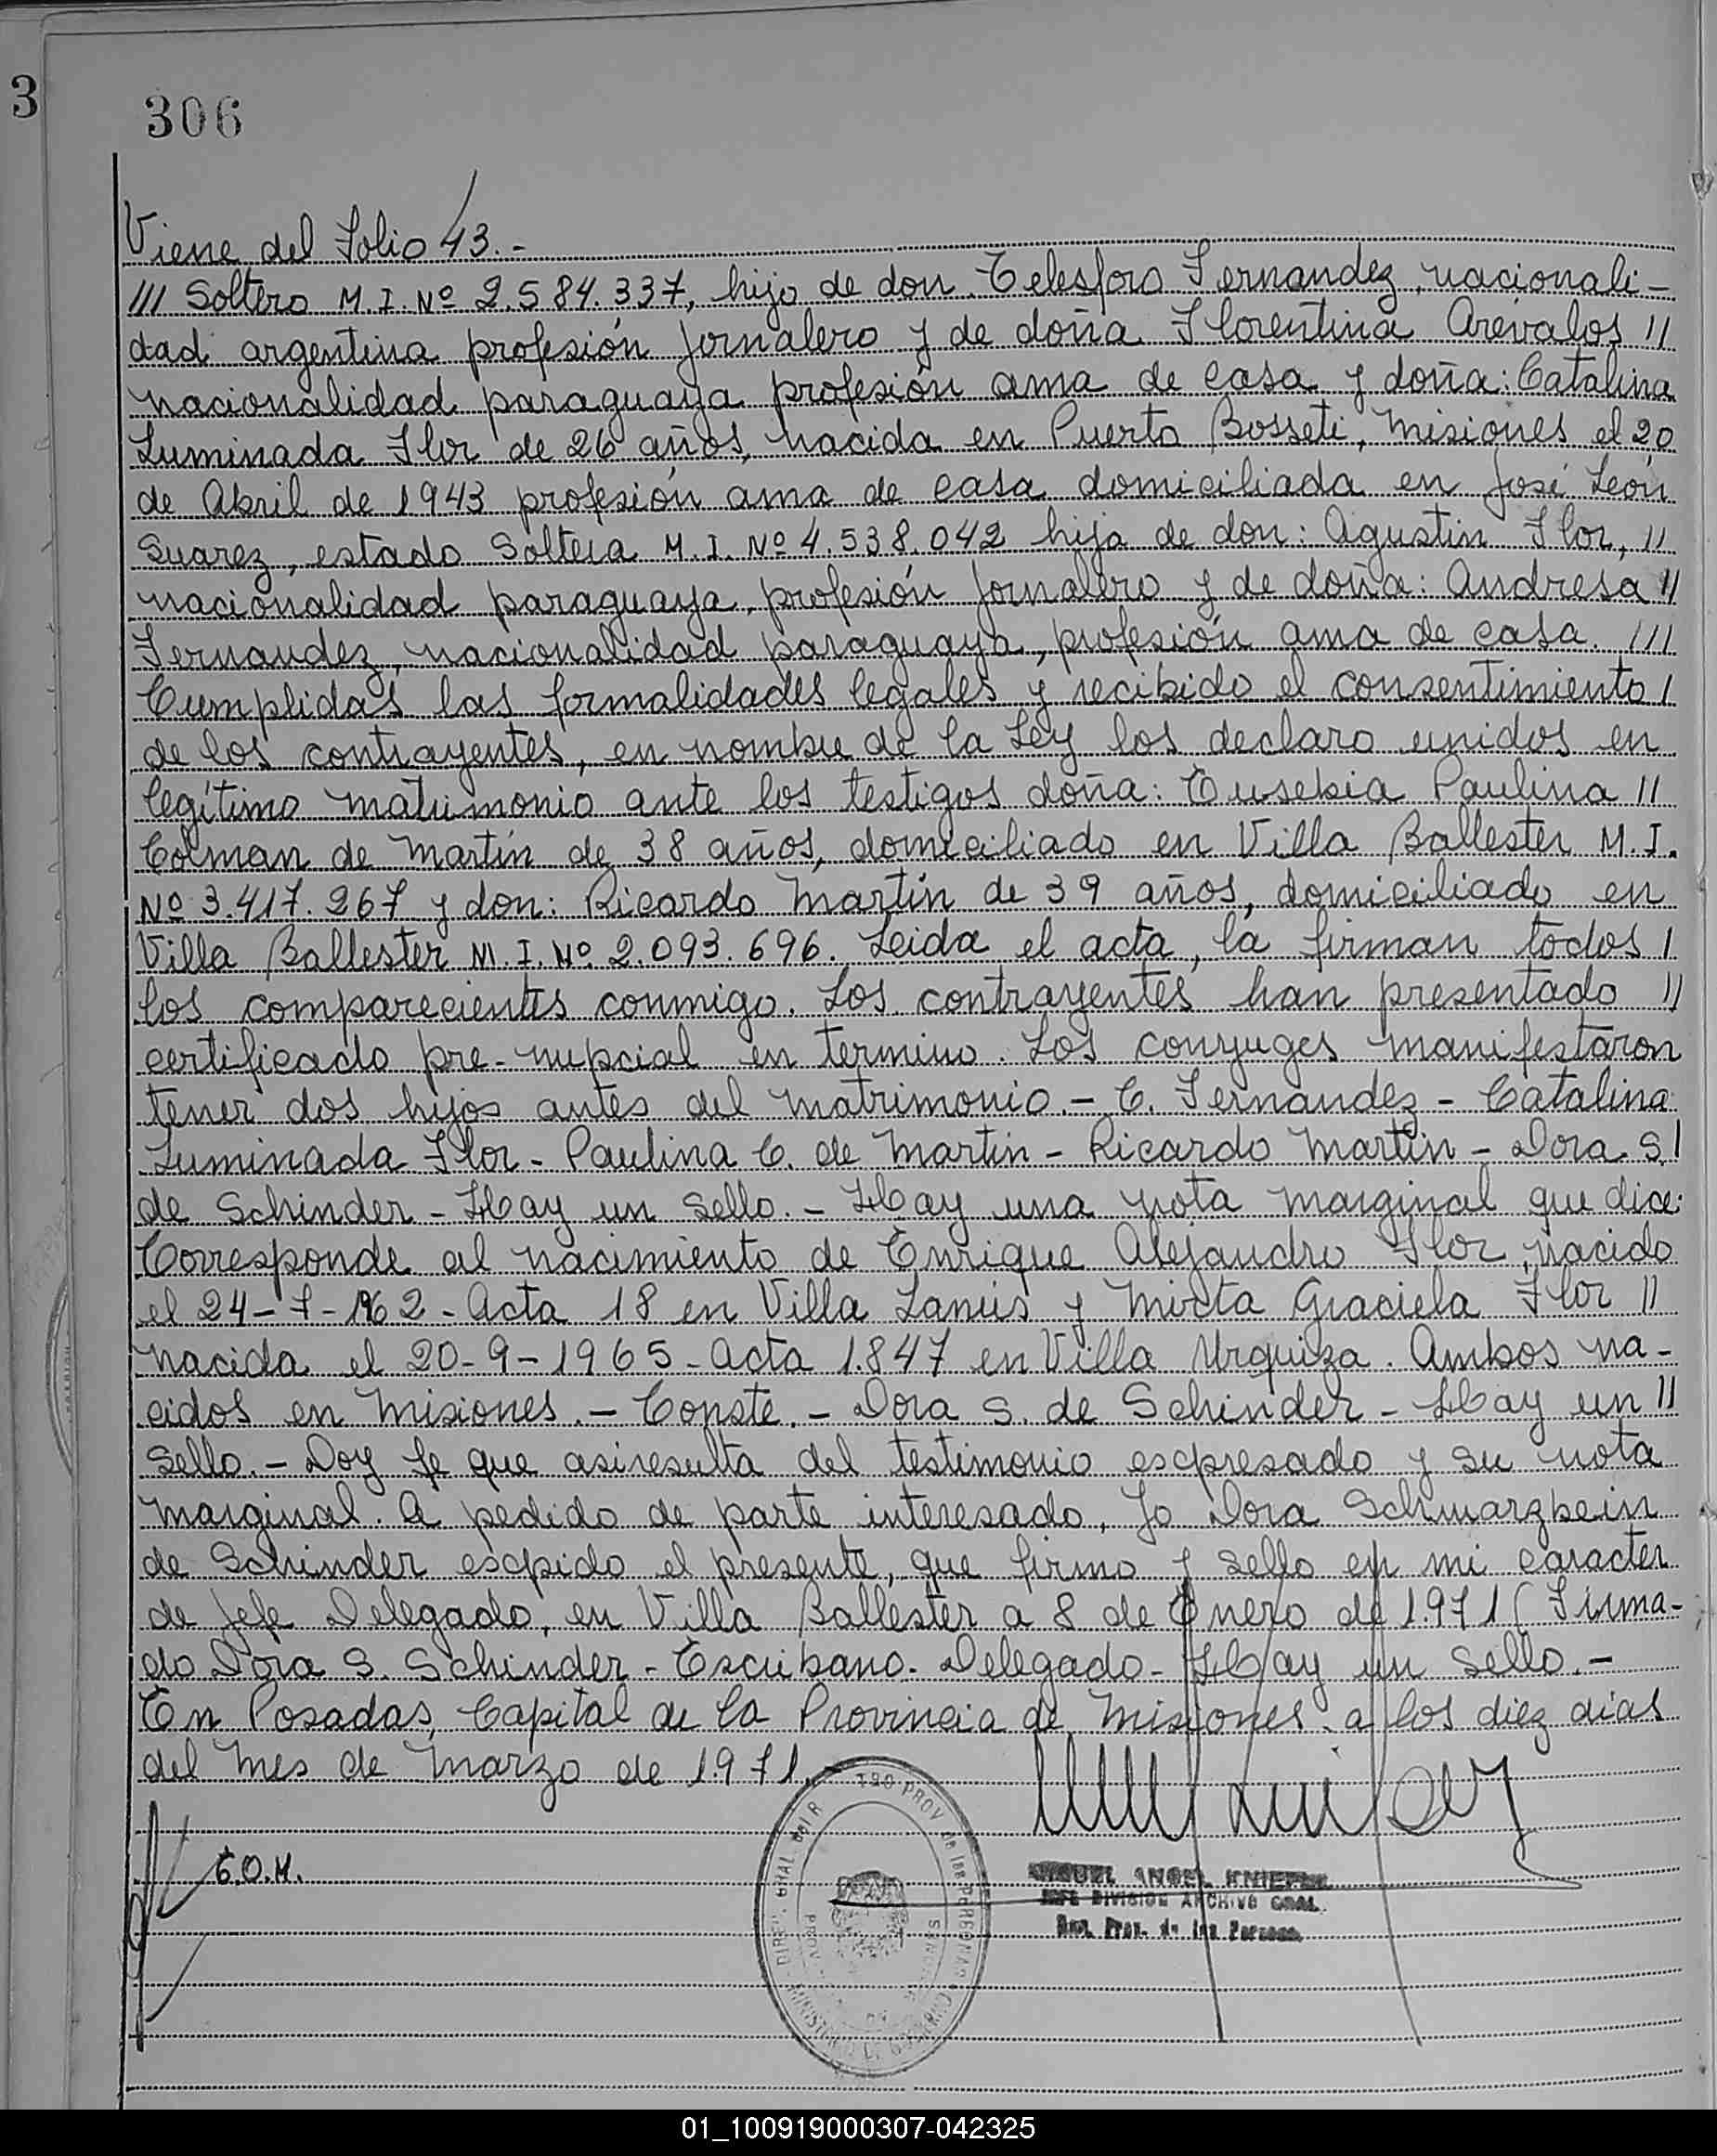 3
306
Viene del Folio 43.-
/// Soltero M.I. Nº 2.584.337, hijo de don Telesforo Fernandez, nacionali-
dad argentina profesión jornalero y de doña Florentina Arévalos //
nacionalidad paraguaya profesión ama de casa y doña: Catalina
Luminada Flor de 26 años, nacida en Puerto Bosseti, Misiones el 20
de Abril de 1943 profesión ama de casa domiciliada en José León
Suarez, estado Soltera M.I. Nº 4.538.042 hija de don: Agustin Flor, //
nacionalidad paraguaya, profesión jornalero y de doña: Andresa //
Fernandez, nacionalidad paraguaya, profesión ama de casa. ///
Cumplidas las formalidades legales y recibido el consentimiento /
de los contrayentes, en nombre de la Ley los declaro unidos en
legítimo matrimonio ante los testigos doña: Eusebia Paulina //
Colman de Martín de 38 años, domiciliado en Villa Ballester M.I.
Nº 3.417.267 y don: Ricardo Martín de 39 años, domiciliado en
Villa Ballester M.I. Nº 2.093.696. Leida el acta, la firman todos /
los comparecientes conmigo. Los contrayentes han presentado //
certificado pre-nupcial en termino. Los conyuges manifestaron
tener dos hijos antes del matrimonio.- C. Fernandez - Catalina
Luminada Flor - Paulina C. de Martin - Ricardo Martin - Dora S. /
de Schinder - Hay un sello. - Hay una nota marginal que dice:
Corresponde al nacimiento de Enrique Alejandro Flor, nacido
el 24-7-1962 - Acta 18 en Villa Lanús y Mirta Graciela Flor //
nacida el 20-9-1965 - Acta 1.847 en Villa Urquiza. Ambos na-
cidos en Misiones. - Conste. - Dora S. de Schinder - Hay un //
sello. - Doy fe que asiresulta del testimonio expresado y su nota
marginal. A pedido de parte interesado, Yo Dora Schwarzbein
de Schinder expido el presente, que firmo y sello en mi caracter
de Jefe Delegado, en Villa Ballester a 8 de Enero de 1.971 (Firma-
do Dora S. Schinder - Escribano - Delegado - Hay un sello. -
En Posadas, Capital de la Provincia de Misiones a los diez dias
del mes de Marzo de 1.971.-
MIGUEL ANGEL
JEFE DIVISION ARCHIVO GRAL.
Prov. de las Personas
01_100919000307-042325